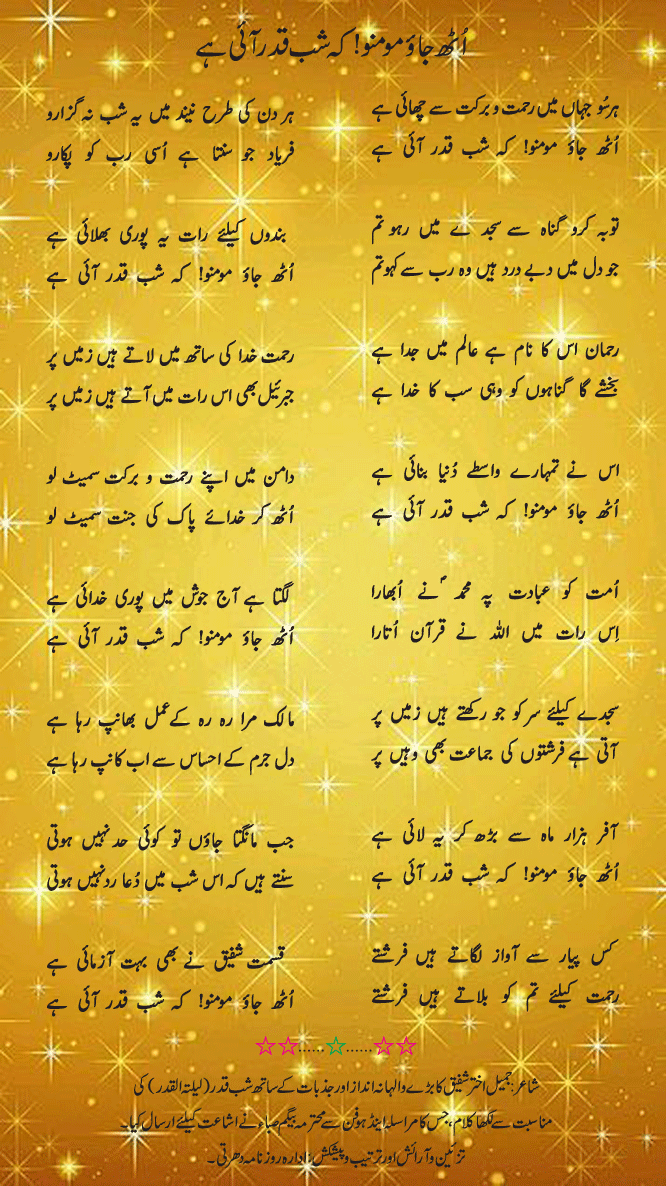 اُٹھ جاؤ مومنو! کہ شب قدر آئی ہے
ہرسُو جہاں میں رحمت و برکت سے چھائی ہے
اُٹھ جاؤ مومنو! کہ شب قدر آئی ہے
ہر دن کی طرح نیند میں یہ شب نہ گزارو
فریاد جو سنتا ہے اُسی رب کو پکارو
توبہ کرو گناہ سے سجد ے میں رہو تم
جو دل میں دبے درد ہیں وہ رب سے کہو تم
بندوں کیلئے رات یہ پوری بھلائی ہے
اُٹھ جاؤ مومنو! کہ شب قدر آئی ہے
رحمان اس کا نام ہے عالم میں جدا ہے
بخشے گا گناہوں کو وہی سب کا خدا ہے
رحمت خدا کی ساتھ میں لاتے ہیں زمیں پر
جبرئیل بھی اس رات میں آتے ہیں زمیں پر
اس نے تمہارے واسطے دُنیا بنائی ہے
اُٹھ جاؤ مومنو! کہ شب قدر آئی ہے
دامن میں اپنے رحمت و برکت سمیٹ لو
اُٹھ کر خدائے پاک کی جنت سمیٹ لو
اُمت کو عبادت پہ محمدؐ نے اُبھارا
اِس رات میں اللہ نے قرآن اُتارا
لگتا ہے آج جوش میں پوری خدائی ہے
اُٹھ جاؤ مومنو! کہ شب قدر آئی ہے
سجدے کیلئے سر کو جو رکھتے ہیں زمیں پر
آتی ہے فرشتوں کی جماعت بھی وہیں پر
مالک مرا رہ رہ کے عمل بھانپ رہا ہے
دل جرم کے احساس سے اب کانپ رہا ہے
آفر ہزار ماہ سے بڑھ کر یہ لائی ہے
اُٹھ جاؤ مومنو! کہ شب قدر آئی ہے
جب مانگتا جاؤں تو کوئی حد نہیں ہوتی
سنتے ہیں کہ اس شب میں دُعا رد نہیں ہوتی
کس پیار سے آواز لگاتے ہیں فرشتے
رحمت کیلئے تم کو بلاتے ہیں فرشتے
قسمت شفیق نے بھی بہت آزمائی ہے
اُٹھ جاؤ مومنو! کہ شب قدر آئی ہے
☆☆......☆......☆☆
شاعر: جمیل اختر شفیق کا بڑے والہانہ انداز اور جذبات کے ساتھ شب قدر (لیلتہ القدر) کی
مناسبت سے لکھا کلام، جس کا مراسلہ اینڈ ہوفن سے محترمہ بیگم صباء نے اشاعت کیلئے ارسال کیا۔
تزئین و آرائش اور ترتیب و پیشکش: ادارہ روزنامہ دھرتی۔